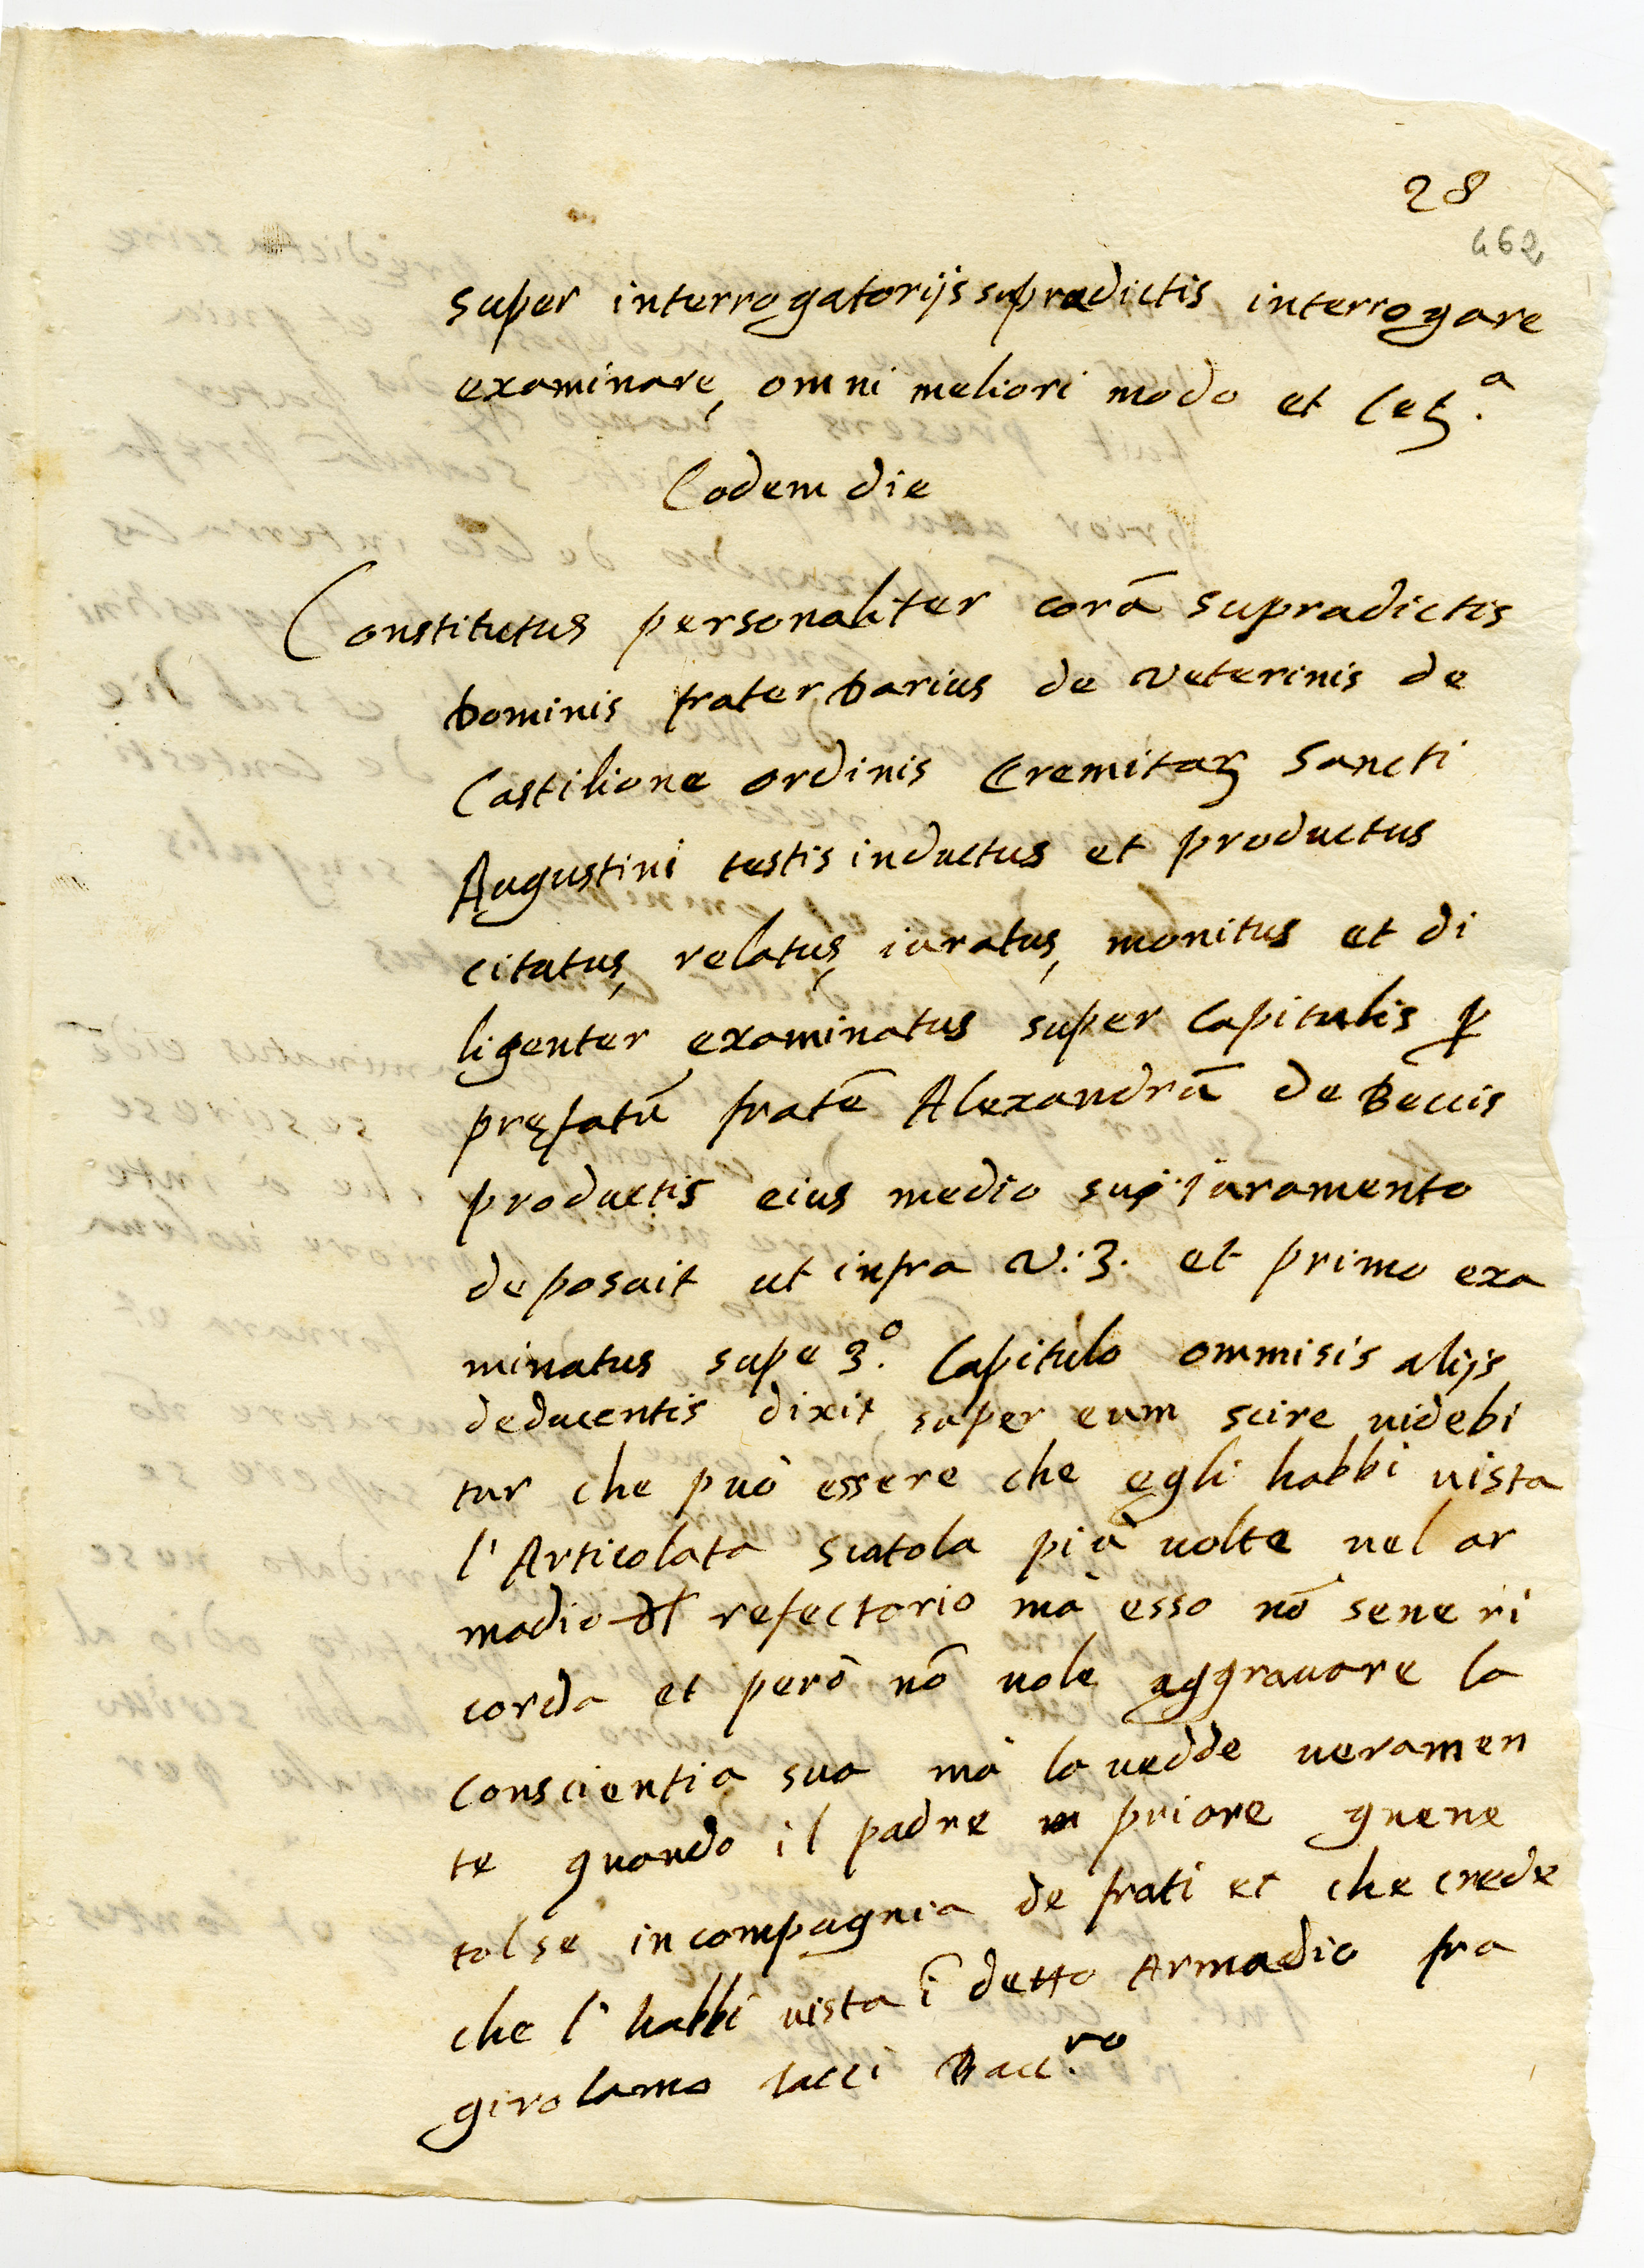 28
462
super interrogatorijs supradictis interrogare
examinare, omni meliori modo et Cet.ª
Eodem die
Constitutus personaliter corā supradictis
Dominis frater Darius de Veterinis de
Castilione ordinis Eremitaꝝ Sancti
Augustini testis inductus et productus
citatus, relatus, iuratus, monitus et di
ligenter examinatus super Capitulis ꝑ
pręfatū fratē Alexandrū de Beccis
productis eius medio sui iuramento
deposuit ut infra v: 3. et primo exa
minatus supe 3.º Capitulo ommisis alijs
deducentis dixit super eum scire uidebi
tur che può essere che egli habbi uista
l'Articolata scatola più uolte nel ar
madio del refectorio mà esso nō sene ri
corda et però nō uole aggrauare la
conscientia sua mà la uedde ueramen
te quando il padre priore guene
tolse in compagnia de frati et che crede
che l'habbi uista ī detto Armadio fra
girolamo lacci Bacc.ro